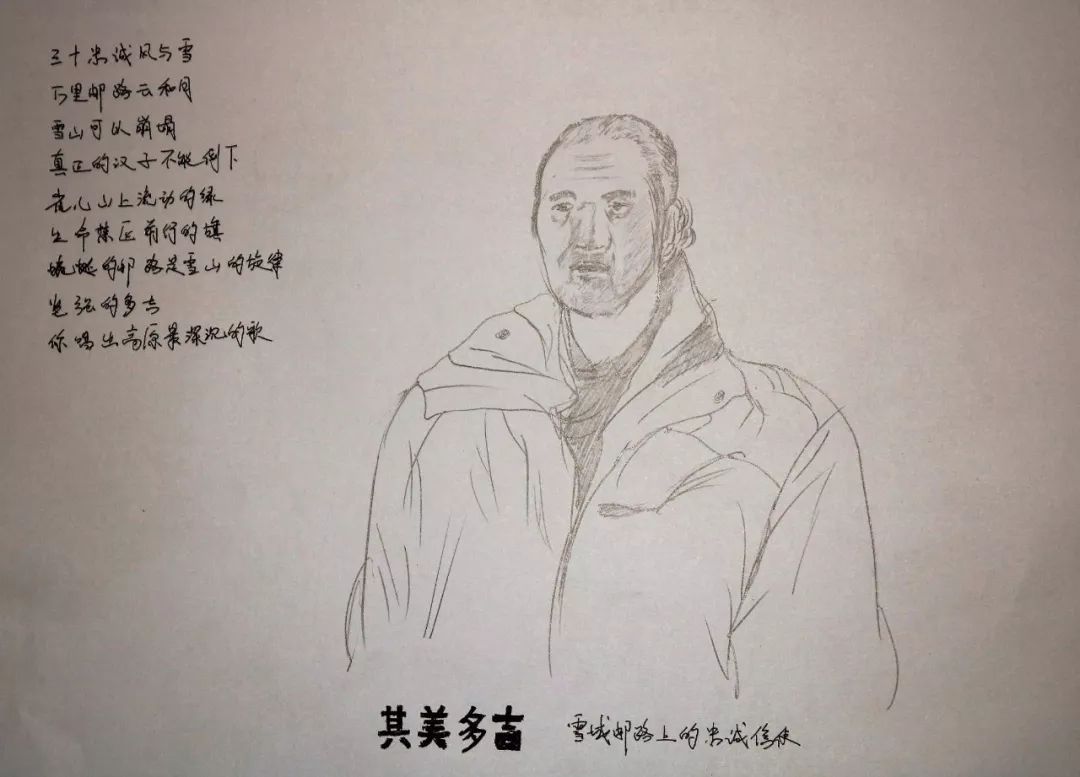 三十忠诚风与雪
万里邮路云和月
雪山可以崩塌
真正的汉子不能倒下
雀儿山上流动的绿
生命禁区前行的旗
蜿蜒的邮路是雪山的旋律
坚强的多吉
你唱出高原最深沉的歌
其美多吉
雪域邮路上的忠诚信使